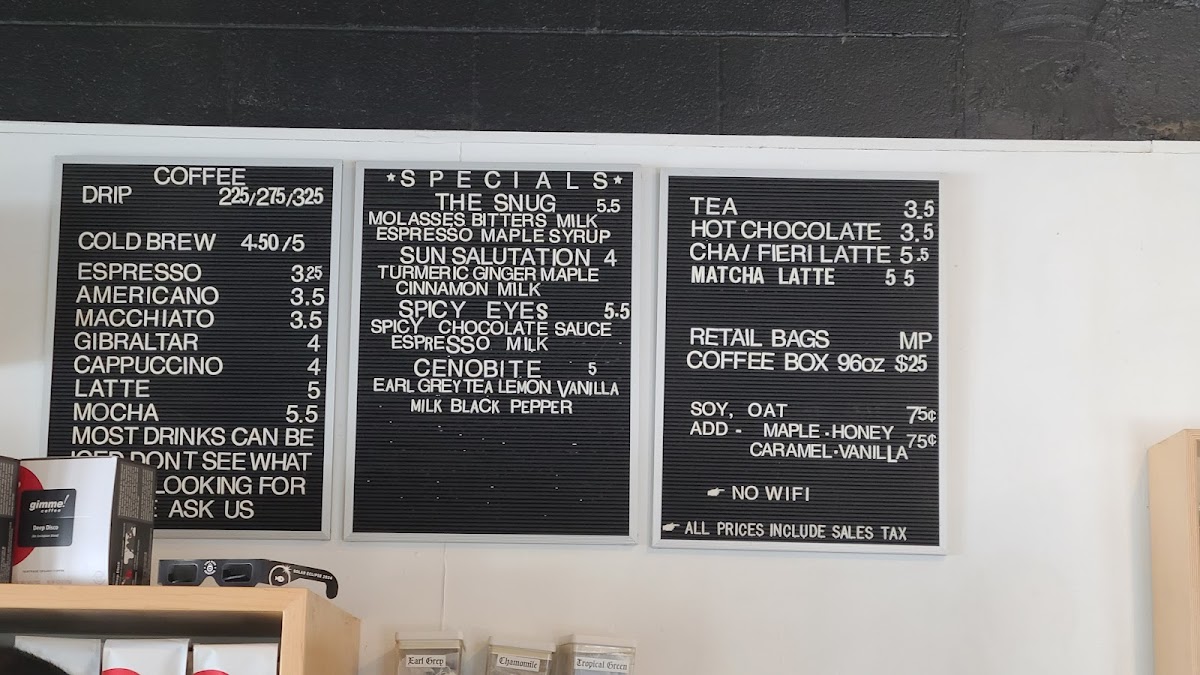 COFFEE
DRIP 225/275/325
COLD BREW 4.50/5
ESPRESSO 3.25
AMERICANO 3.5
MACCHIATO 3.5
GIBRALTAR 4
CAPPUCCINO 4
LATTE 5
MOCHA 5.5
MOST DRINKS CAN BE
ICED DONT SEE WHAT
LOOKING FOR
ASK US
★SPECIALS★
THE SNUG 5.5
MOLASSES BITTERS MILK
ESPRESSO MAPLE SYRUP
SUN SALUTATION 4
TURMERIC GINGER MAPLE
CINNAMON MILK
SPICY EYES 5.5
SPICY CHOCOLATE SAUCE
ESPRESSO MILK
CENOBITE 5
EARL GREY TEA LEMON VANILLA
MILK BLACK PEPPER
TEA 3.5
HOT CHOCOLATE 3.5
CHA/ FIERI LATTE 5.5
MATCHA LATTE 5 5
RETAIL BAGS MP
COFFEE BOX 96oz $25
SOY, OAT 75¢
ADD - MAPLE-HONEY
CARAMEL-VANILLA 75¢
NO WIFI
ALL PRICES INCLUDE SALES TAX
gimme!
coffee
Deep Disco
SOLAR ECLIPSE 2024
Earl Grey
Chamomile
Tropical Green